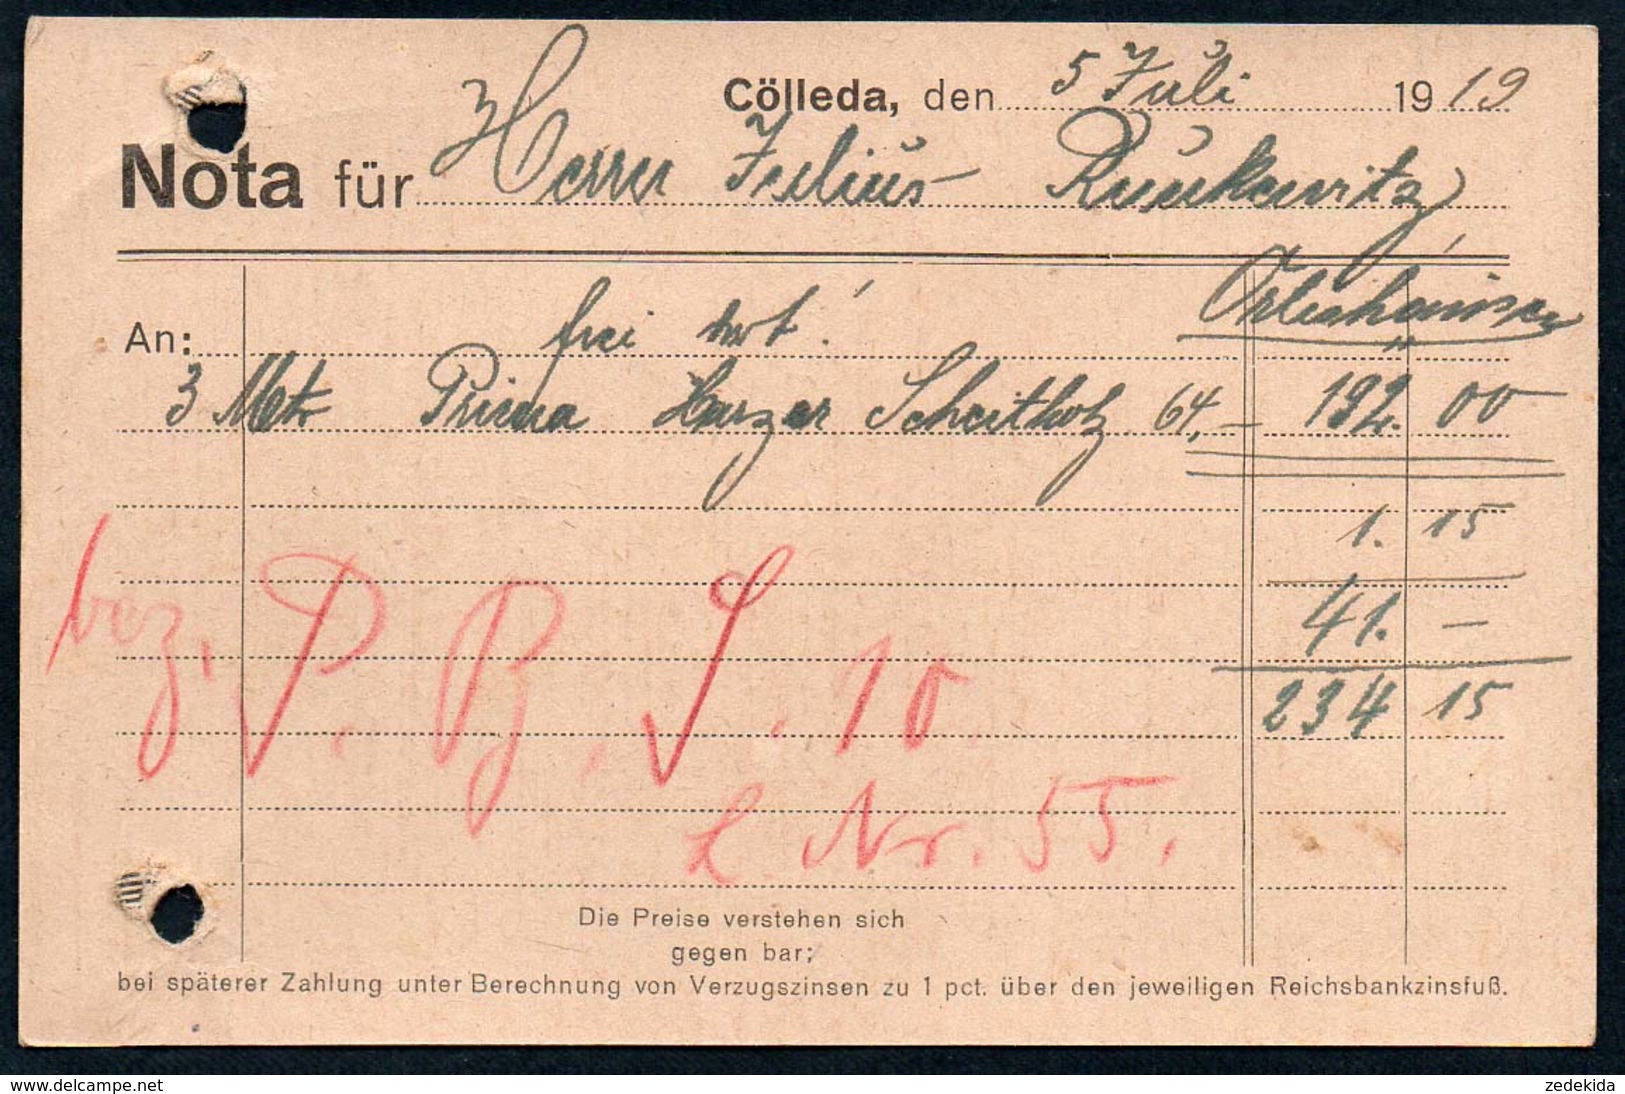 Cölleda, den 5 Juli 1919
Nota für Herrn Julius Runkewitz
Orlishausen
An: frei dort!
3 Mtr Prima Harzer Scheitholz 64,— 192.00
1.15
41. —
234 15
bez. P. 10.
L. Nr. 55.
Die Preise verstehen sich
gegen bar;
bei späterer Zahlung unter Berechnung von Verzugszinsen zu 1 pct. über den jeweiligen Reichsbankzinsfuß.
delcampe.net
zedekida